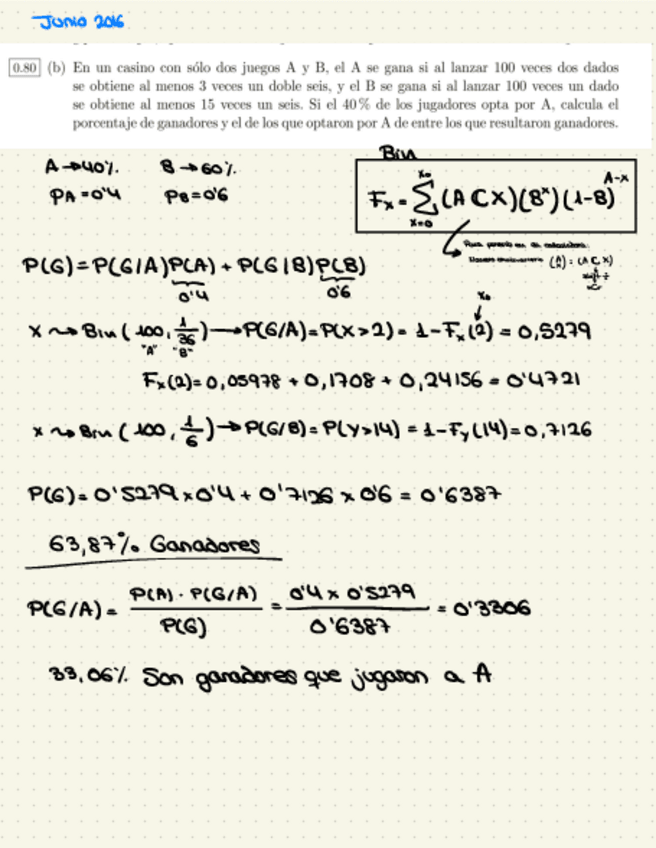 JUNIO 2016
0.80 (b) En un casino con sólo dos juegos A y B, el A se gana si al lanzar 100 veces dos dados
se obtiene al menos 3 veces un doble seis, y el B se gana si al lanzar 100 veces un dado
se obtiene al menos 15 veces un seis. Si el 40 % de los jugadores opta por A, calcula el
porcentaje de ganadores y el de los que optaron por A de entre los que resultaron ganadores.
A → 40%. B → 60%.
PA = 0'4 PB = 0'6
Bin
Fx = Σ (A C X)(B^x)(1-B)^A-x
x0
x=0
(A C X)
P(G) = P(G/A)P(A) + P(G/B)P(B)
0'4 0'6
x0
X ~> Bin (100, 1/36) → P(G/A) = P(X>2) = 1 - Fx(2) = 0,5279
"A" "B"
Fx(2) = 0,05978 + 0,1708 + 0,24156 = 0'4721
X ~> Bin (100, 1/6) → P(G/B) = P(Y>14) = 1 - Fy(14) = 0,7126
P(G) = 0'5279 x 0'4 + 0'7126 x 0'6 = 0'6387
63,87% Ganadores
P(G/A) = P(A) · P(G/A) / P(G) = 0'4 x 0'5279 / 0'6387 = 0'3306
33,06% Son ganadores que jugaron a A